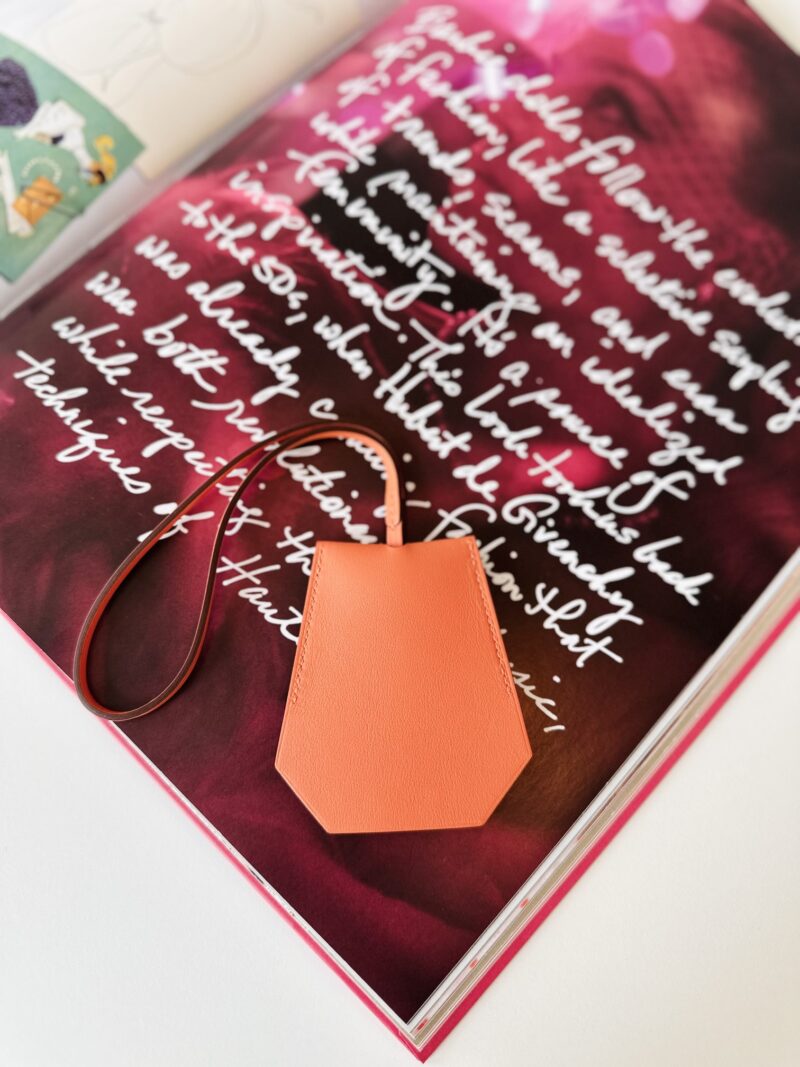 Barbie dolls follow the evoluti
of fashion, like a selective sampling
of trends, seasons, and eras
while maintaining an idealized
femininity. As a source of
inspiration. This Look takes us back
to the 50s, when Hubert de Givenchy
was already fashion that
was both revolutiona
while respecting the
techniques of Haut